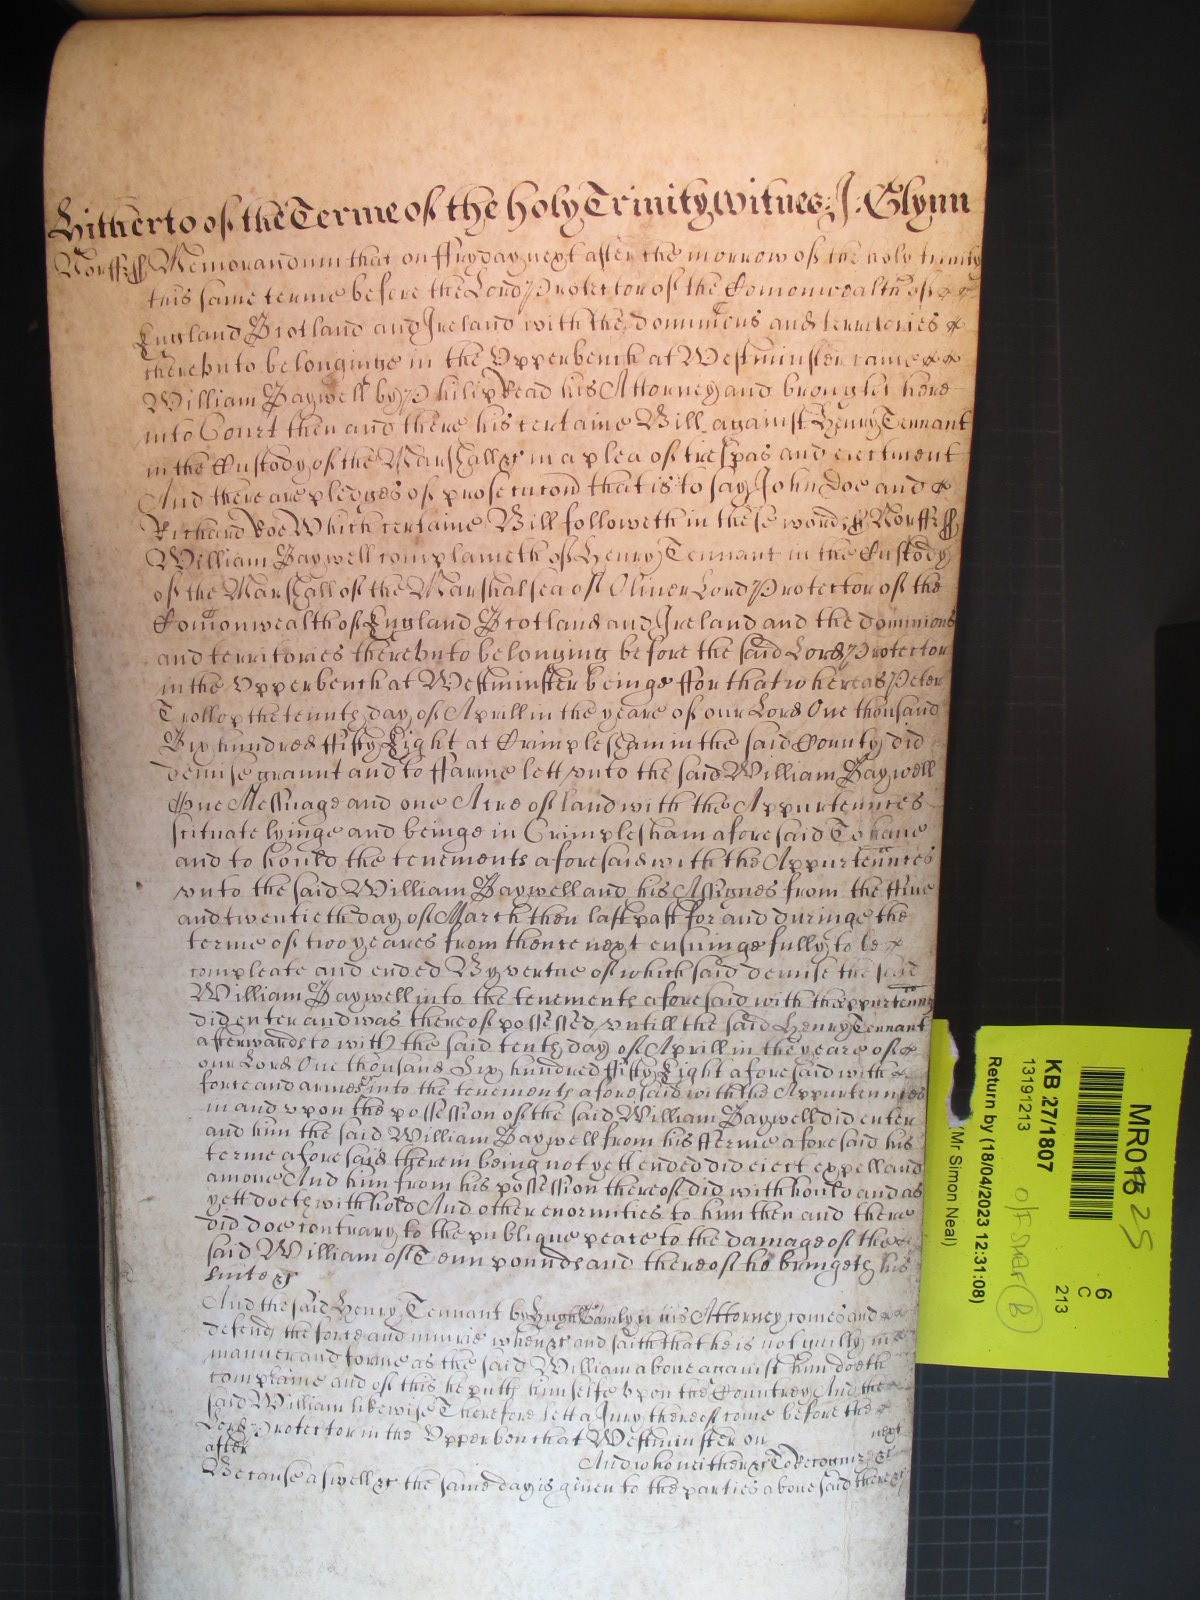 Hitherto of the Terme of the holy Trinity witnes J. Glynn
Norff ss Memorandum that on ffryday next after the morrow of the holy trinity
this same terme before the Lord Protector of the Comonwealth of
England Scotland and Ireland with the dominions and territories
therevnto belonginge in the Vpperbench at Westminster came
William Bagwell by Philip Read his Attorney and brought here
into Court then and there his certaine Bill against Henry Tennant
in the Custody of the Marshall &c in a plea of trespas and eiectment
And there are pledges of prosecucon that is to say John Doe and
Richard Roe Which certaine Bill followeth in these words ss Norff ss
William Bagwell complaineth of Henry Tennant in the Custody
of the Marshall of the Marshalsea of Oliver Lord Protector of the
Comonwealth of England Scotland and Ireland and the dominions
and territories therevnto belonging before the said Lord Protector
in the Vpperbench at Westminster beinge ffor that whereas Peter
Trollop the tennth day of Aprill in the yeare of our Lord One thousand
Six hundred ffifty Eight at Crimplesham in the said County did
demise graunt and to ffarme lett vnto the said William Bagwell
One Messuage and one Acre of land with the Appurtennces
scituate lyinge and beinge in Crimplesham aforesaid To haue
and to hould the tenements aforesaid with the Appurtennces
vnto the said William Bagwell and his Assignes from the ffiue
and twentieth day of March then last past for and duringe the
terme of two yeares from thence next ensuinge fully to be
compleate and ended By vertue of which said demise the said
William Bagwell into the tenements aforesaid with thappurtennc
did enter and was thereof possessed vntill the said Henry Tennant
afterwards to with the said tenth day of Aprill in the yeare of
our Lord One thousand Six hundred ffifty Eight aforesaid with
force and armes &c into the tenements aforesaid with the Appurtennces
in and vpon the possession of the said William Bagwell did enter
and him the said William Bagwell from his fferme aforesaid his
terme aforesaid therein being not yett ended did eiect expell and
amove And him from his possession thereof did withhould and as
yett doeth withhold And other enormities to him then and there
did doe contrary to the publique peace to the damage of the
said William of Tenn pounds and thereof he bringeth his
suite &c
And the said Henry Tennant by Hugh his Attorney comes and
defends the force and iniurie when &c and saith that he is not guilty in
manner and forme as the said William aboue against him doeth
complaine and of this he putts himselfe vpon the Countrey And the
said William likewise Therefore lett a Jury thereof come before the
Lord Protector in the Vpperbench at Westminster on next
after And who neither &c To Recognize &c
Because aswell &c the same day is giuen to the parties aboue said there &c
MR01 25
6
C
213
KB 27/1807
13191213
Return by (18/04/2023 12:31:08)
(Mr Simon Neal)